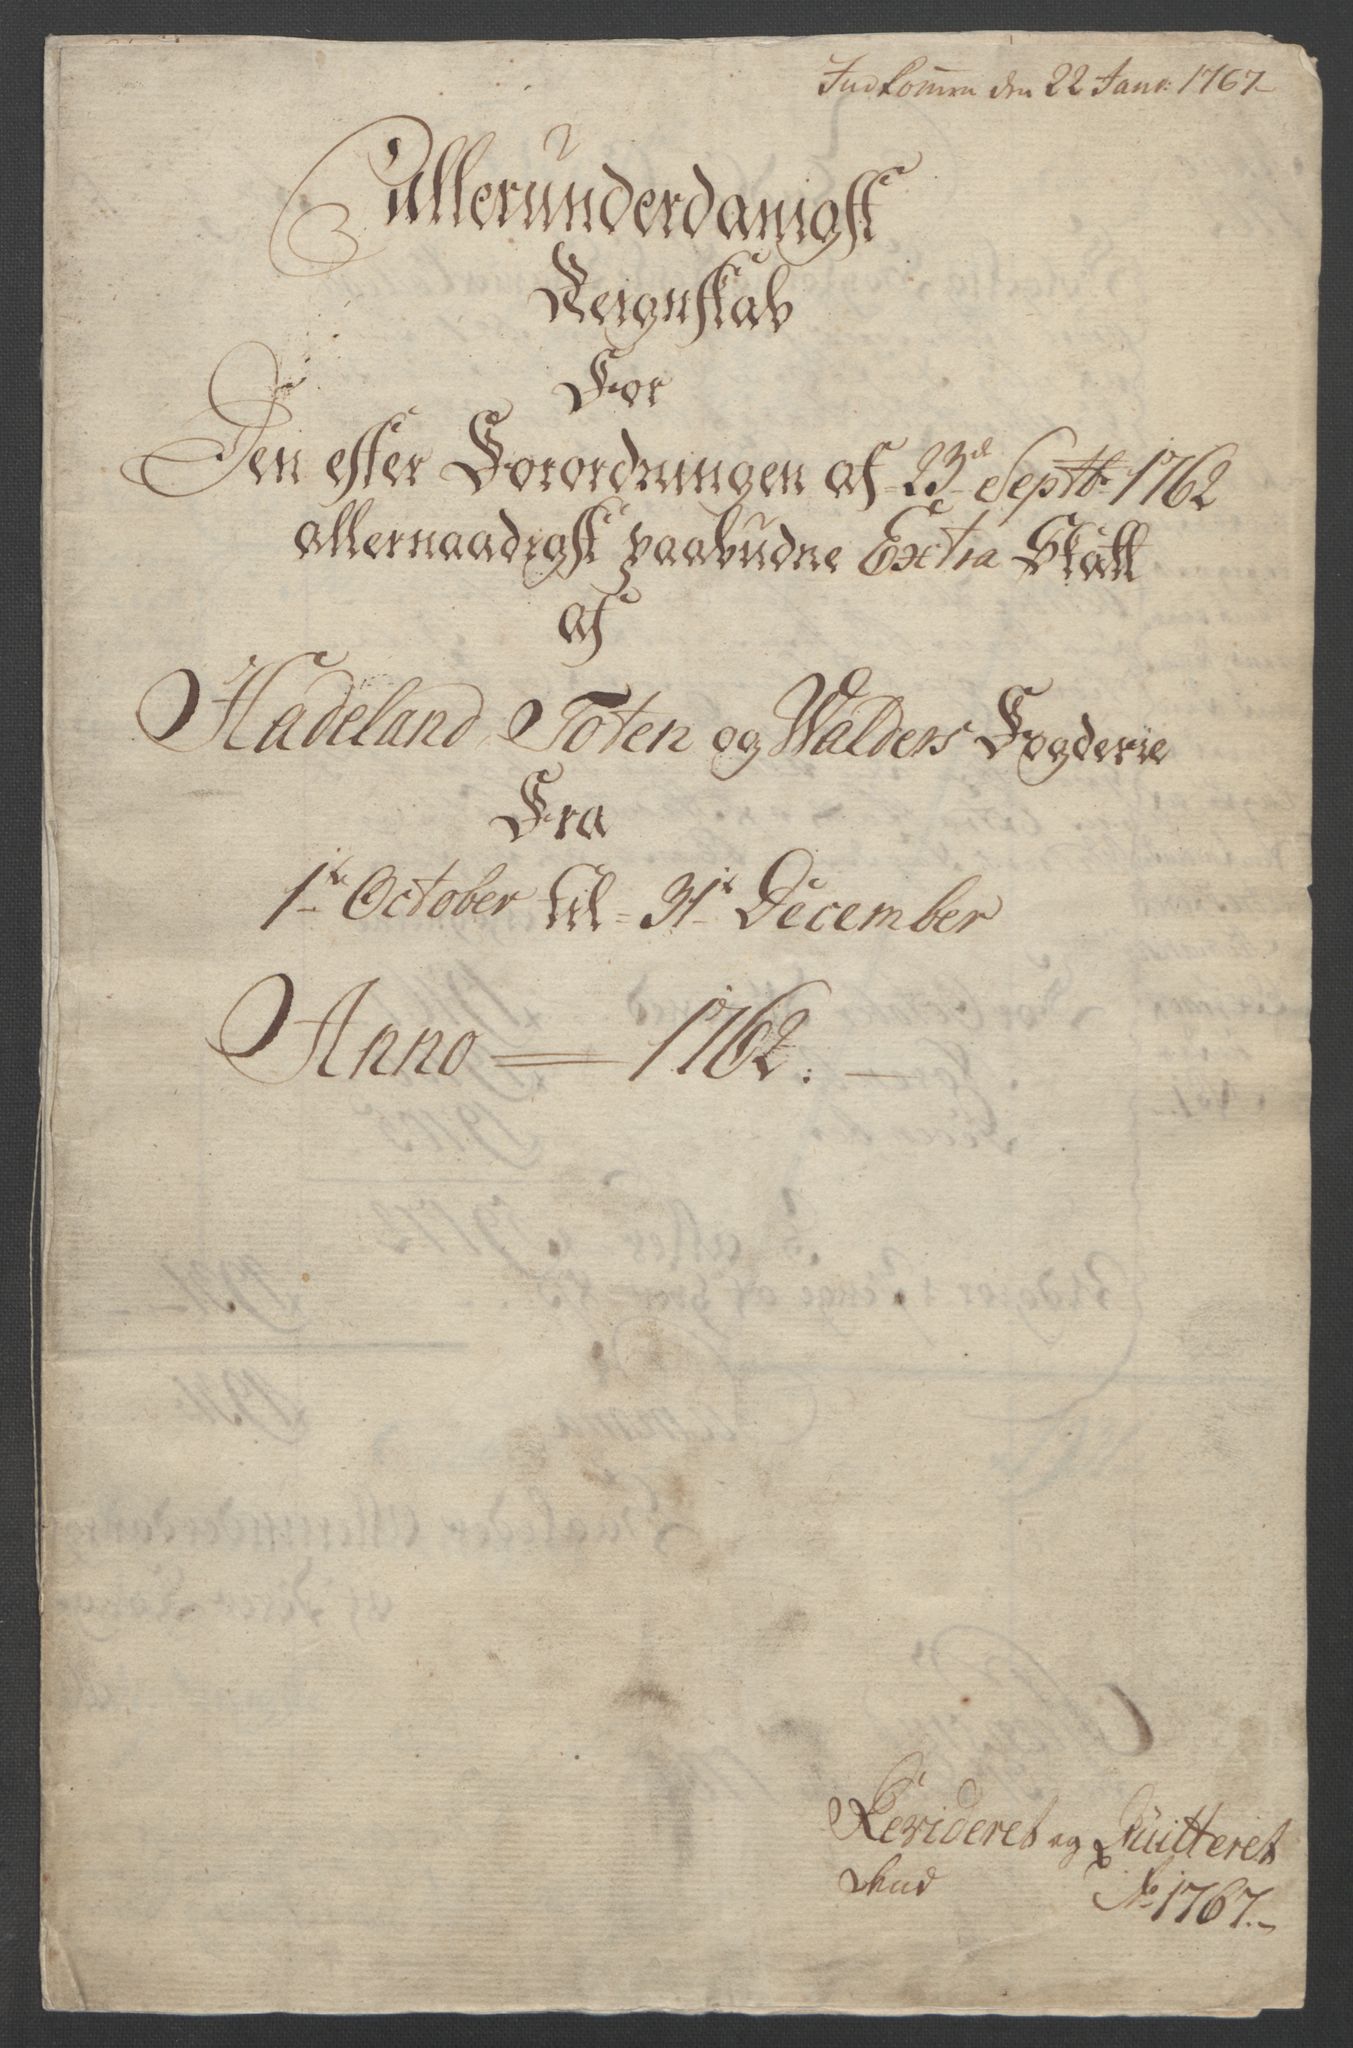 Indkommen den 22 Janv: 1767
Allerunderdanigst
Reignskab
For
Den efter Forordningen af 23de Septbr 1762
allernaadigst paabudne Extra Skatt
af
Hadeland, Toten og Walders Fogderie
Fra
1te October til 31te December
Anno 1762.
Revideret og Quitteret
Ao 1767.